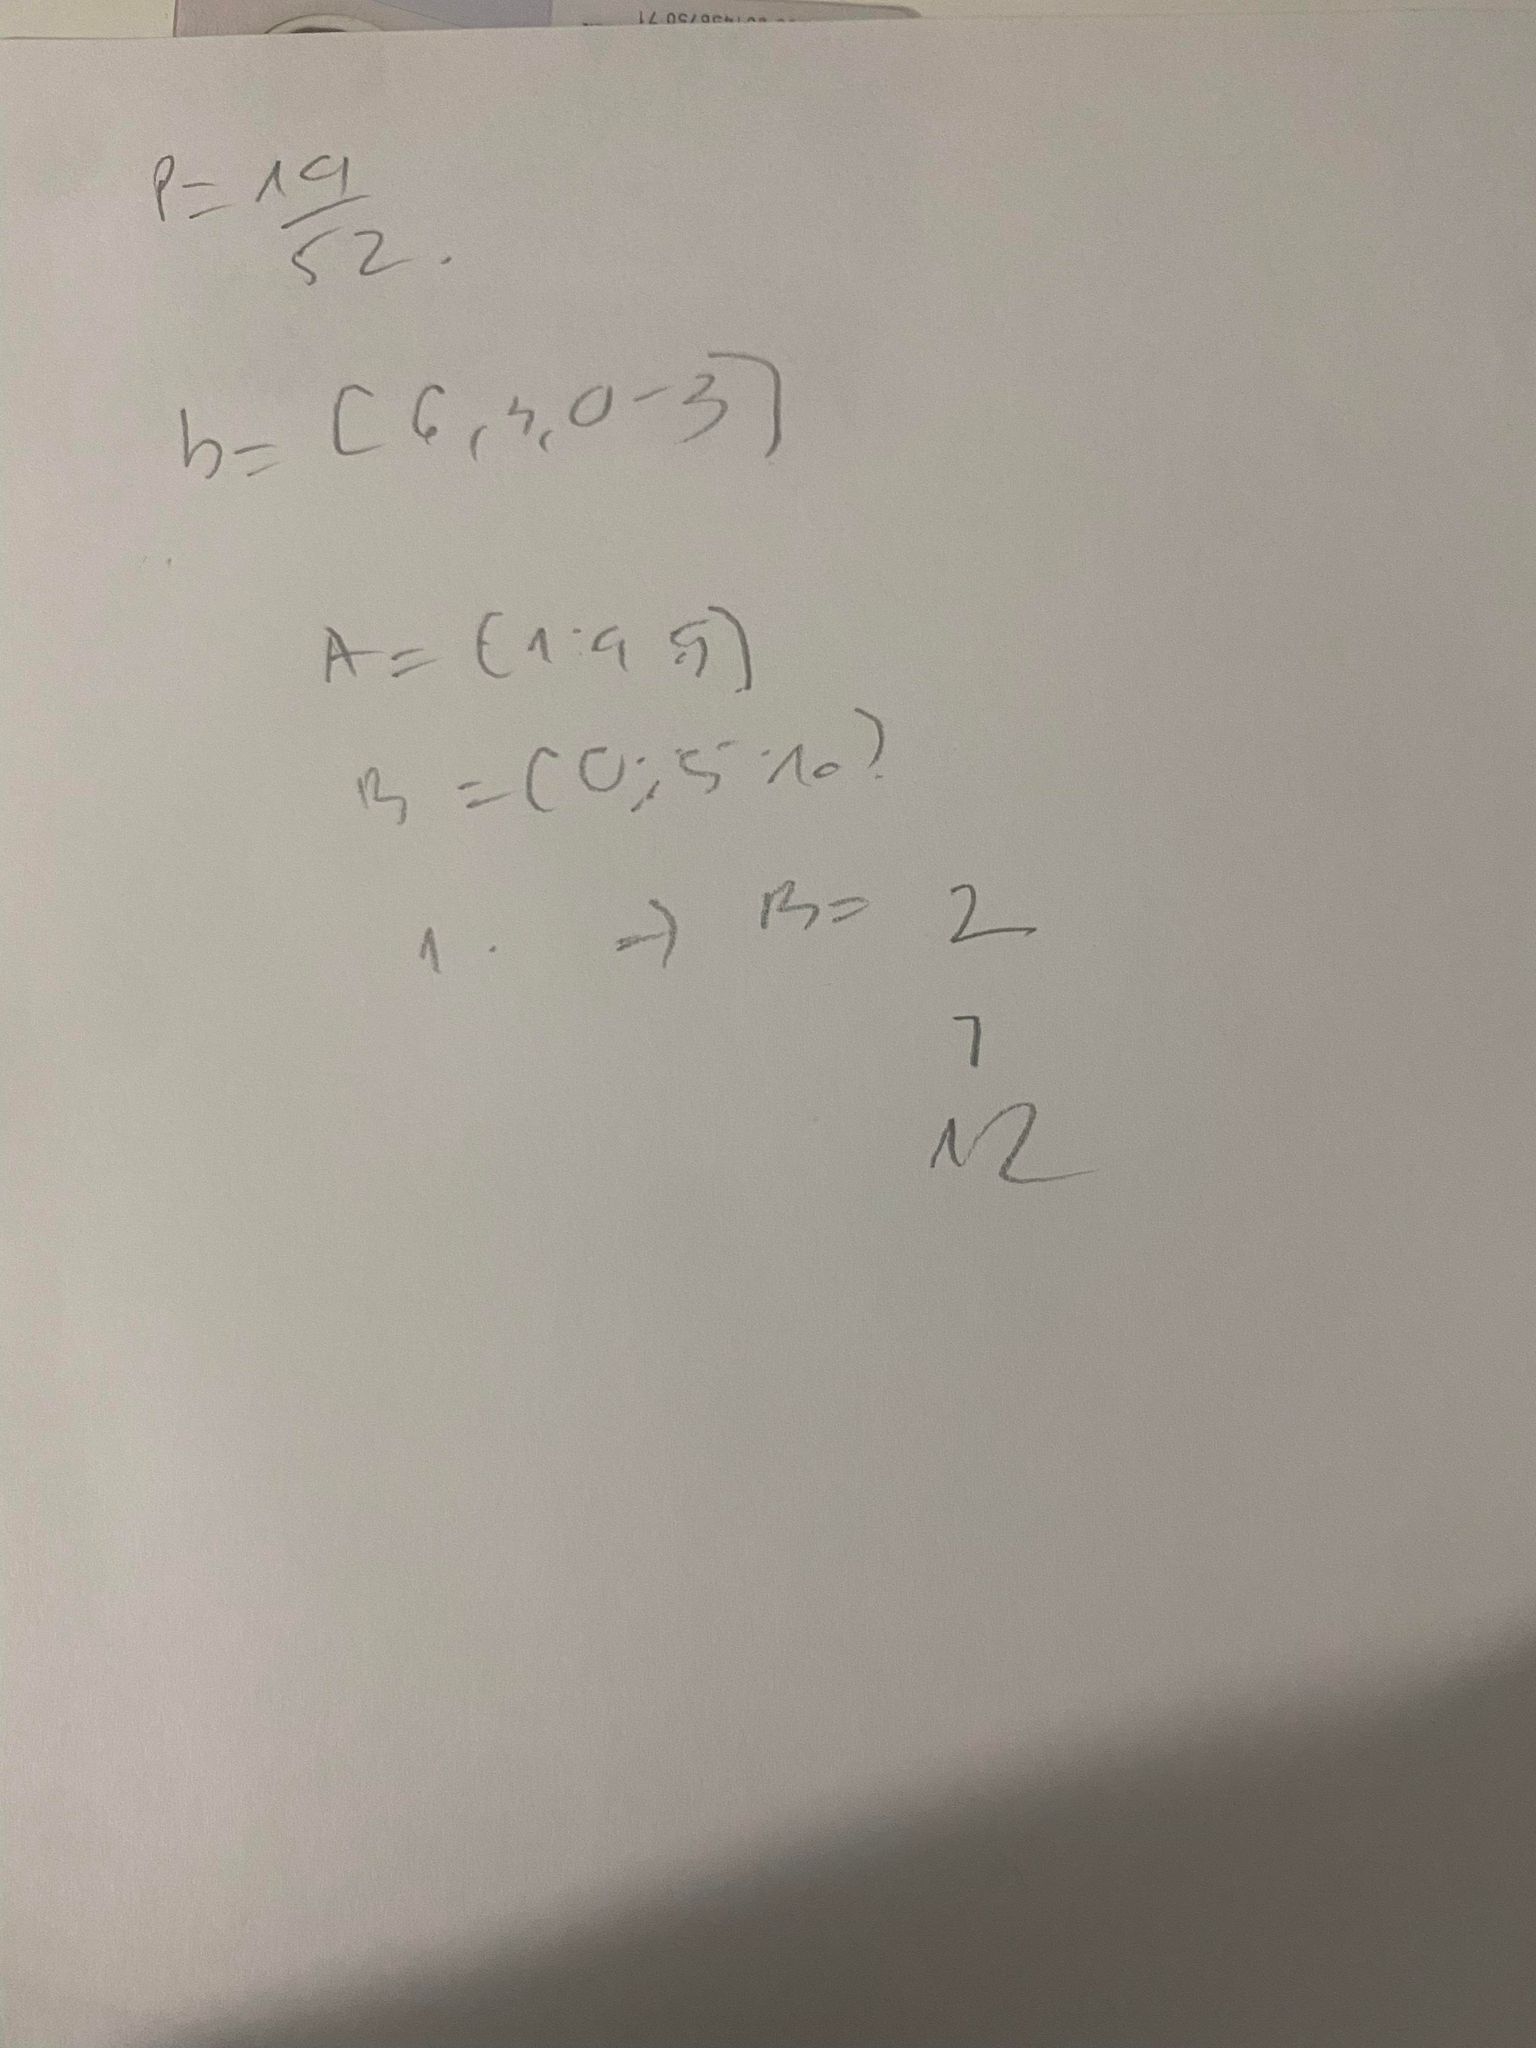 P= 19
52.
b= [6, 3, 0-3]
A= (1:9 5)
B =(0; 5 10)
1. → B= 2
7
12